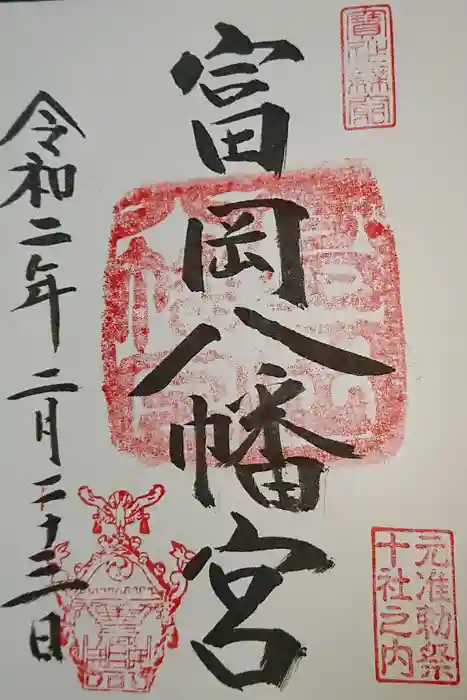 富岡八幡宮
元准勅祭
十社之内
令和二年二月二十三日